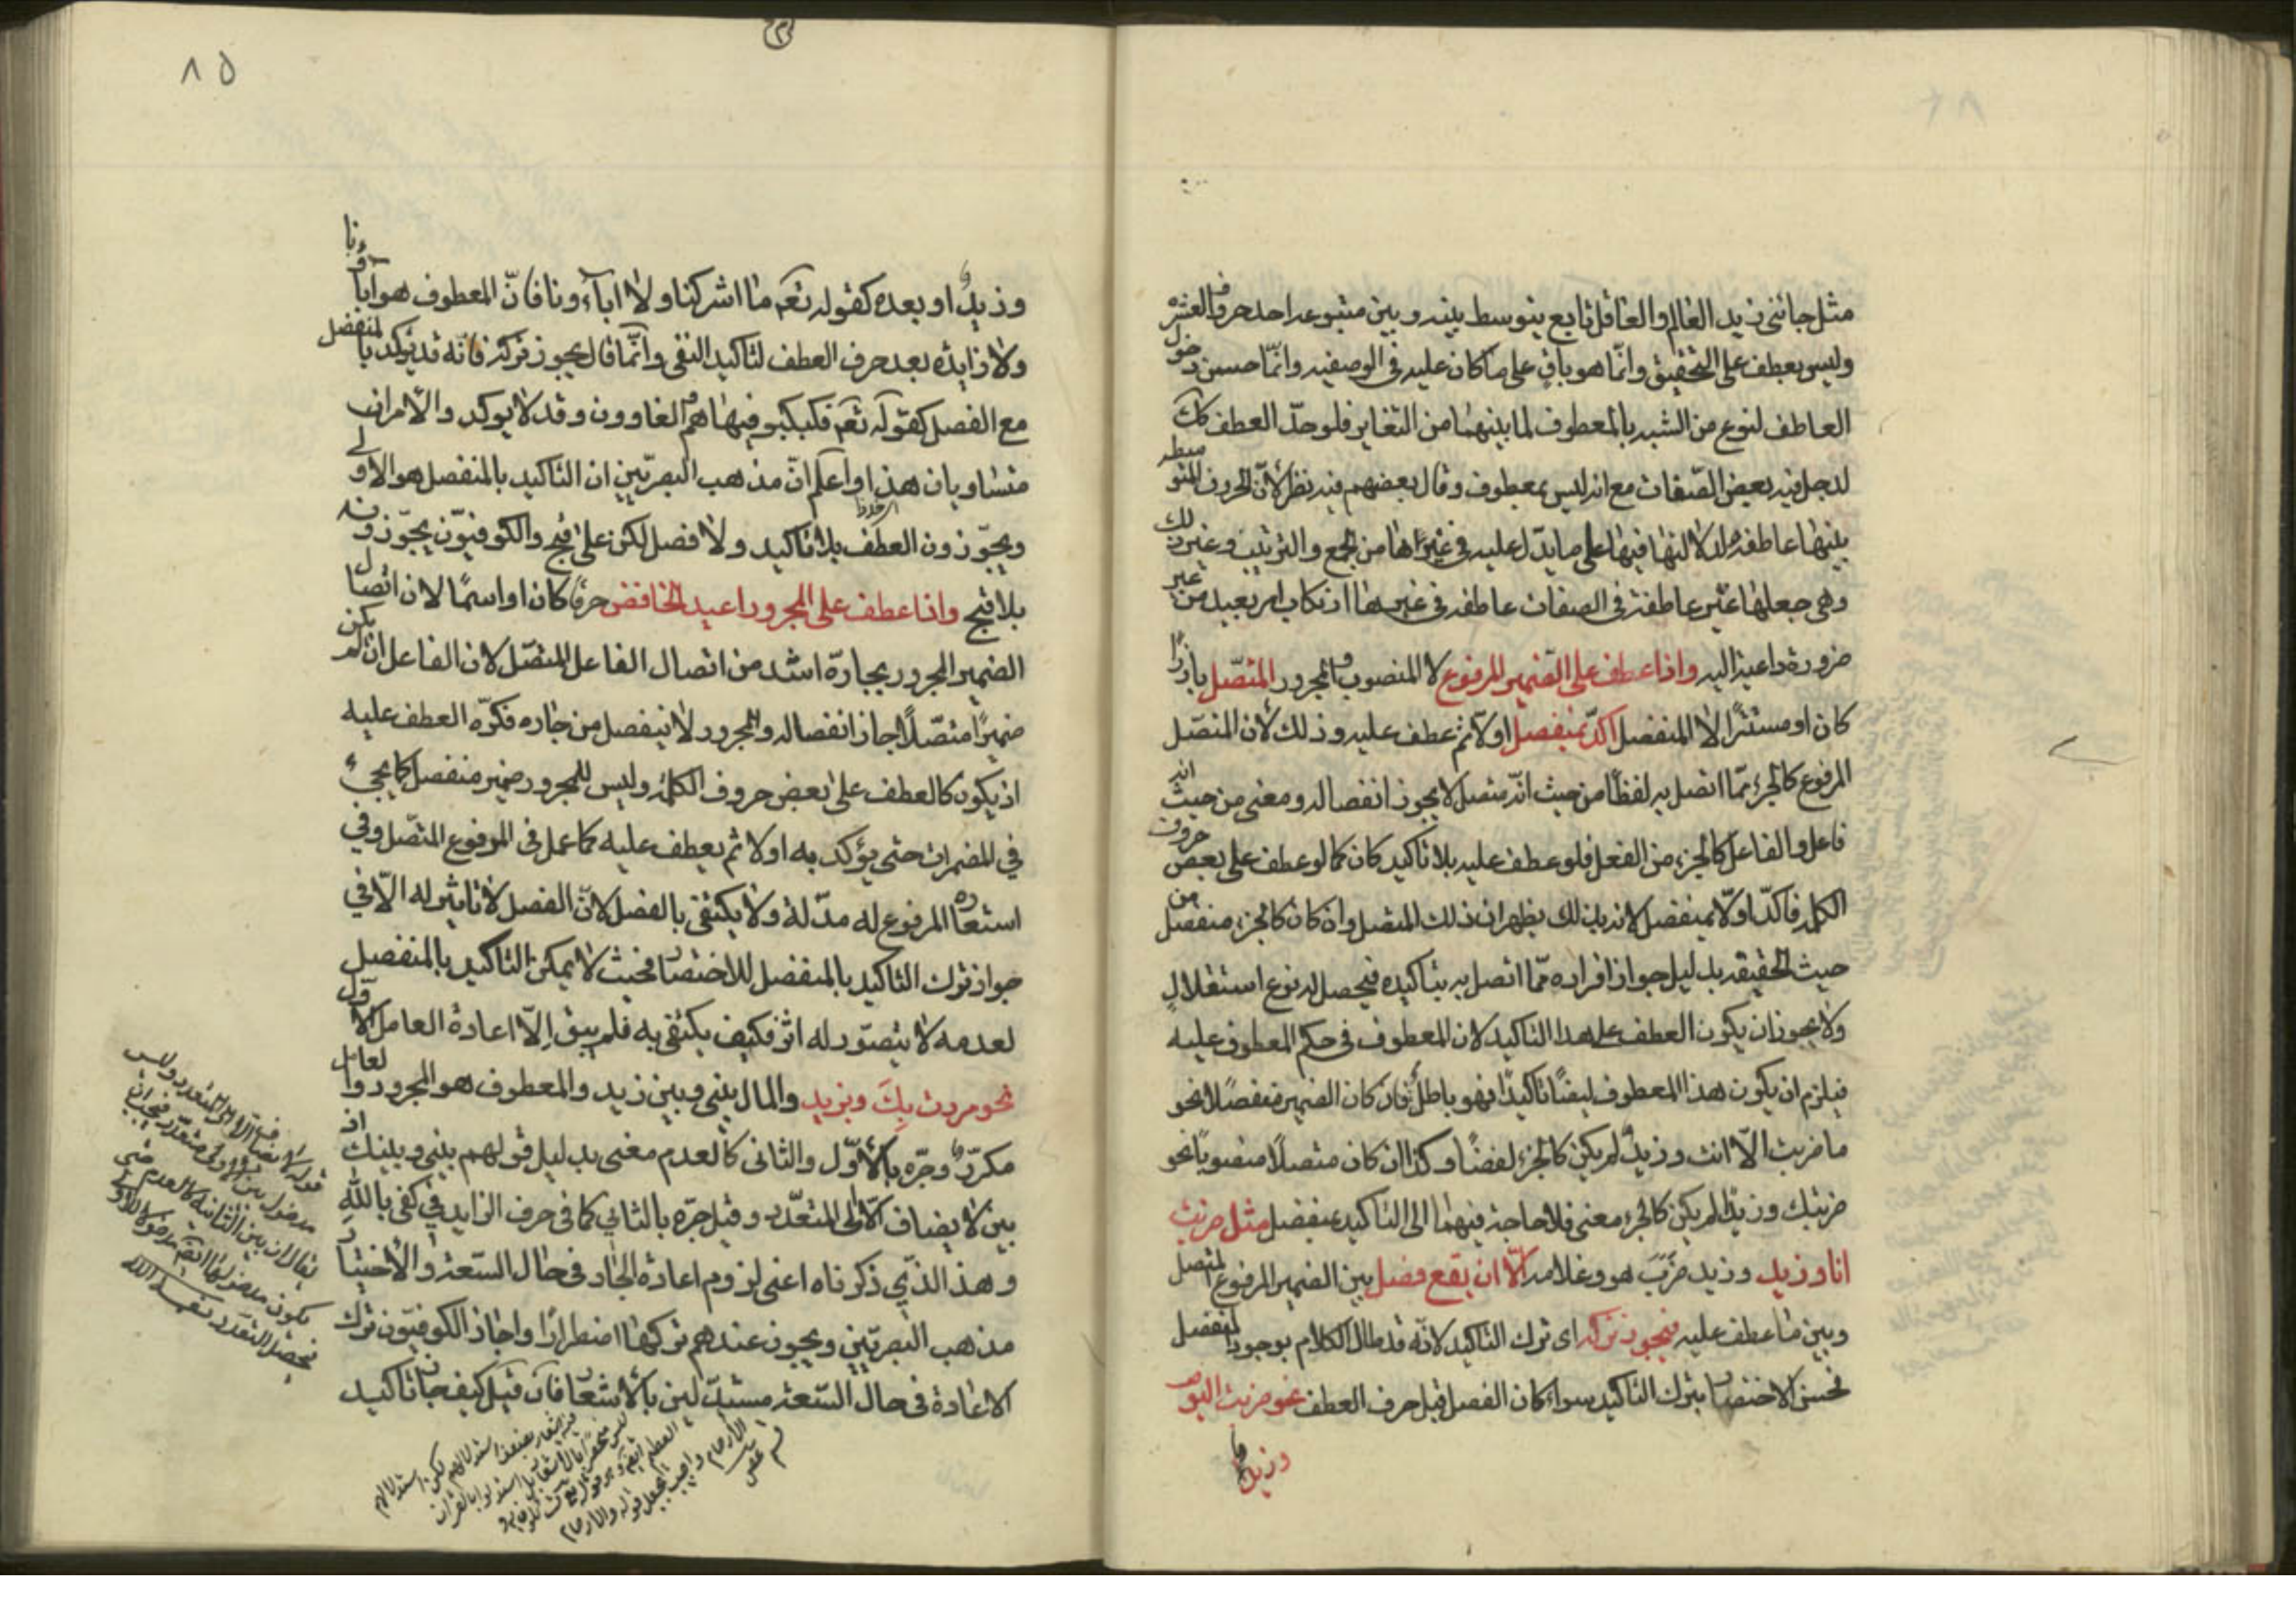 مثل جائنی زید العالم والعاقل تابع یتوسط بینه و بین متبوعه احد حروف العشره
ولیس بعطف علی التحقیق وانّما هو باق علی ما کان علیه فی الوصفیه وانّما حسن دخول
العاطف لنوع من الشبه بالمعطوف لما بینهما من التغایر فلو حدّ العطف کک
لدخل فیه بعض الصّفات مع انه لیس بمعطوف وقال بعضهم فیه نظر لأنّ الحروف المتوسطه
بینها عاطفه لدلالتها فیها علی ما یدّل علیه فی غیرها من الجمع والترتیب وغیر ذلک
وهی جعلها غیر عاطفة فی الصفات عاطفه فی غیرها ارتکاب امر بعید من غیر
ضرورة داعیة الیه واذا عطف علی الضمیر المرفوع لا المنصوب والمجرور المتصّل بارزًا
کان او مستترًا لا المنفصل اکدّ بمنفصل اولا ثم عطف علیه وذلک لأن المتصّل
المرفوع کالجزء ممّا اتصل به لفظًا من حیث انّه متصل لا یجوز انفصاله ومعنی من حیث انه
فاعل والفاعل کالجزء من الفعل فلو عطف علیه بلا تاکید کان کما لو عطف علی بعض حروف
الکلمه فاکدّ اولّا بمنفصل لانه بذلک یظهر ان ذلک المتصل وان کان کالجزء منفصل من
حیث الحقیقه بدلیل جواز افراده ممّا اتصل به بتاکیده فیحصل له نوع استقلال
ولا یجوز ان یکون العطف علی هذا التاکید لان المعطوف فی حکم المعطوف علیه
فیلزم ان یکون هذا المعطوف ایضًا تاکیدًا فهو باطل فان کان الضمیر منفصلًا نحو
ما ضربت الّا انت وزیدٌ لم یکن کالجزء لفضًا وکذا ان کان متصلًا منصوبًا نحو
ضربتک وزیدًا لم یکن کالجزء معنی فلا حاجة فیهما الی التاکید بمنفصل مثل ضربت
انا وزید وزید ضرب هو وغلامه الّا ان یقع فصل بین الضمیر المرفوع المتصل
وبین ما عطف علیه فیجوز ترکه ای ترک التاکید لانّه قد طال الکلام بوجود المنفصل
فحسن الاختصار بترک التاکید سواء کان الفصل قبل حرف العطف نحو ضربت الیوم
وزید
٨٥
وزیدٌ او بعده کقوله تعم ما اشرکنا ولا اباءونا فانّ المعطوف هو آباؤنا
ولا زایده بعد حرف العطف لتاکید النفی وانّما قال یجوز ترکه فانّه قد یؤکد بالمنفصل
مع الفصل کقوله تعم فکبکبو فیها هم والغاوون وقد لا یوکد والامران
متساویان هذا واعلم انّ مذهب البصریّین ان التاکید بالمنفصل هو الاولی
ویجوّزون العطف بلا تاکید ولا فصل لکن علی قبح والکوفیّون یجوّزونه
بلا قبح واذا عطف علی المجرور اعید الخافض حرفًا کان او اسمًا لان اتصال
الضمیر المجرور بجارّه اشد من اتصال الفاعل المتصّل لان الفاعل ان لم یکن
ضمیرًا متصّلًا جاز انفصاله والمجرور لا ینفصل من جاره فکرّه العطف علیه
اذ یکون کالعطف علی بعض حروف الکلمه ولیس للمجرور ضمیر منفصل کما یجیء
فی المضمرات حتی یؤکد به اولا ثم یعطف علیه کما عمل فی المرفوع المتصّل وفی
استعارة المرفوع له مذّلة ولا یکتفی بالفصل لانّ الفصل لا تاثیر له الّا فی
جواز ترک التاکید بالمنفصل للاختصار فحیث لا یمکن التاکید بالمنفصل
لعدمه لا یتصوّر له اثر فکیف یکتفی به فلم یبق الّا اعادة العامل الاوّل
نحو مررت بک وبزید والمال بینی وبین زید والمعطوف هو المجرور والعامل
مکررّ وجرّه بالأوّل والثانی کالعدم معنی بدلیل قولهم بینی وبینک اذ
بین لا یضاف الّا الی المتعدّد وقیل جرّه بالثانی کما فی حرف الزاید فی کفی بالله
وهذا الذّی ذکرناه اعنی لزوم اعادة الجار فی حال السّعة والاختیار
مذهب البصریّین ویجوز عندهم ترکها اضطرارًا واجاز الکوفیّون ترک
الاعادة فی حال السّعة مستدلّین بالاشعار فان قیل کیف جاز تاکید